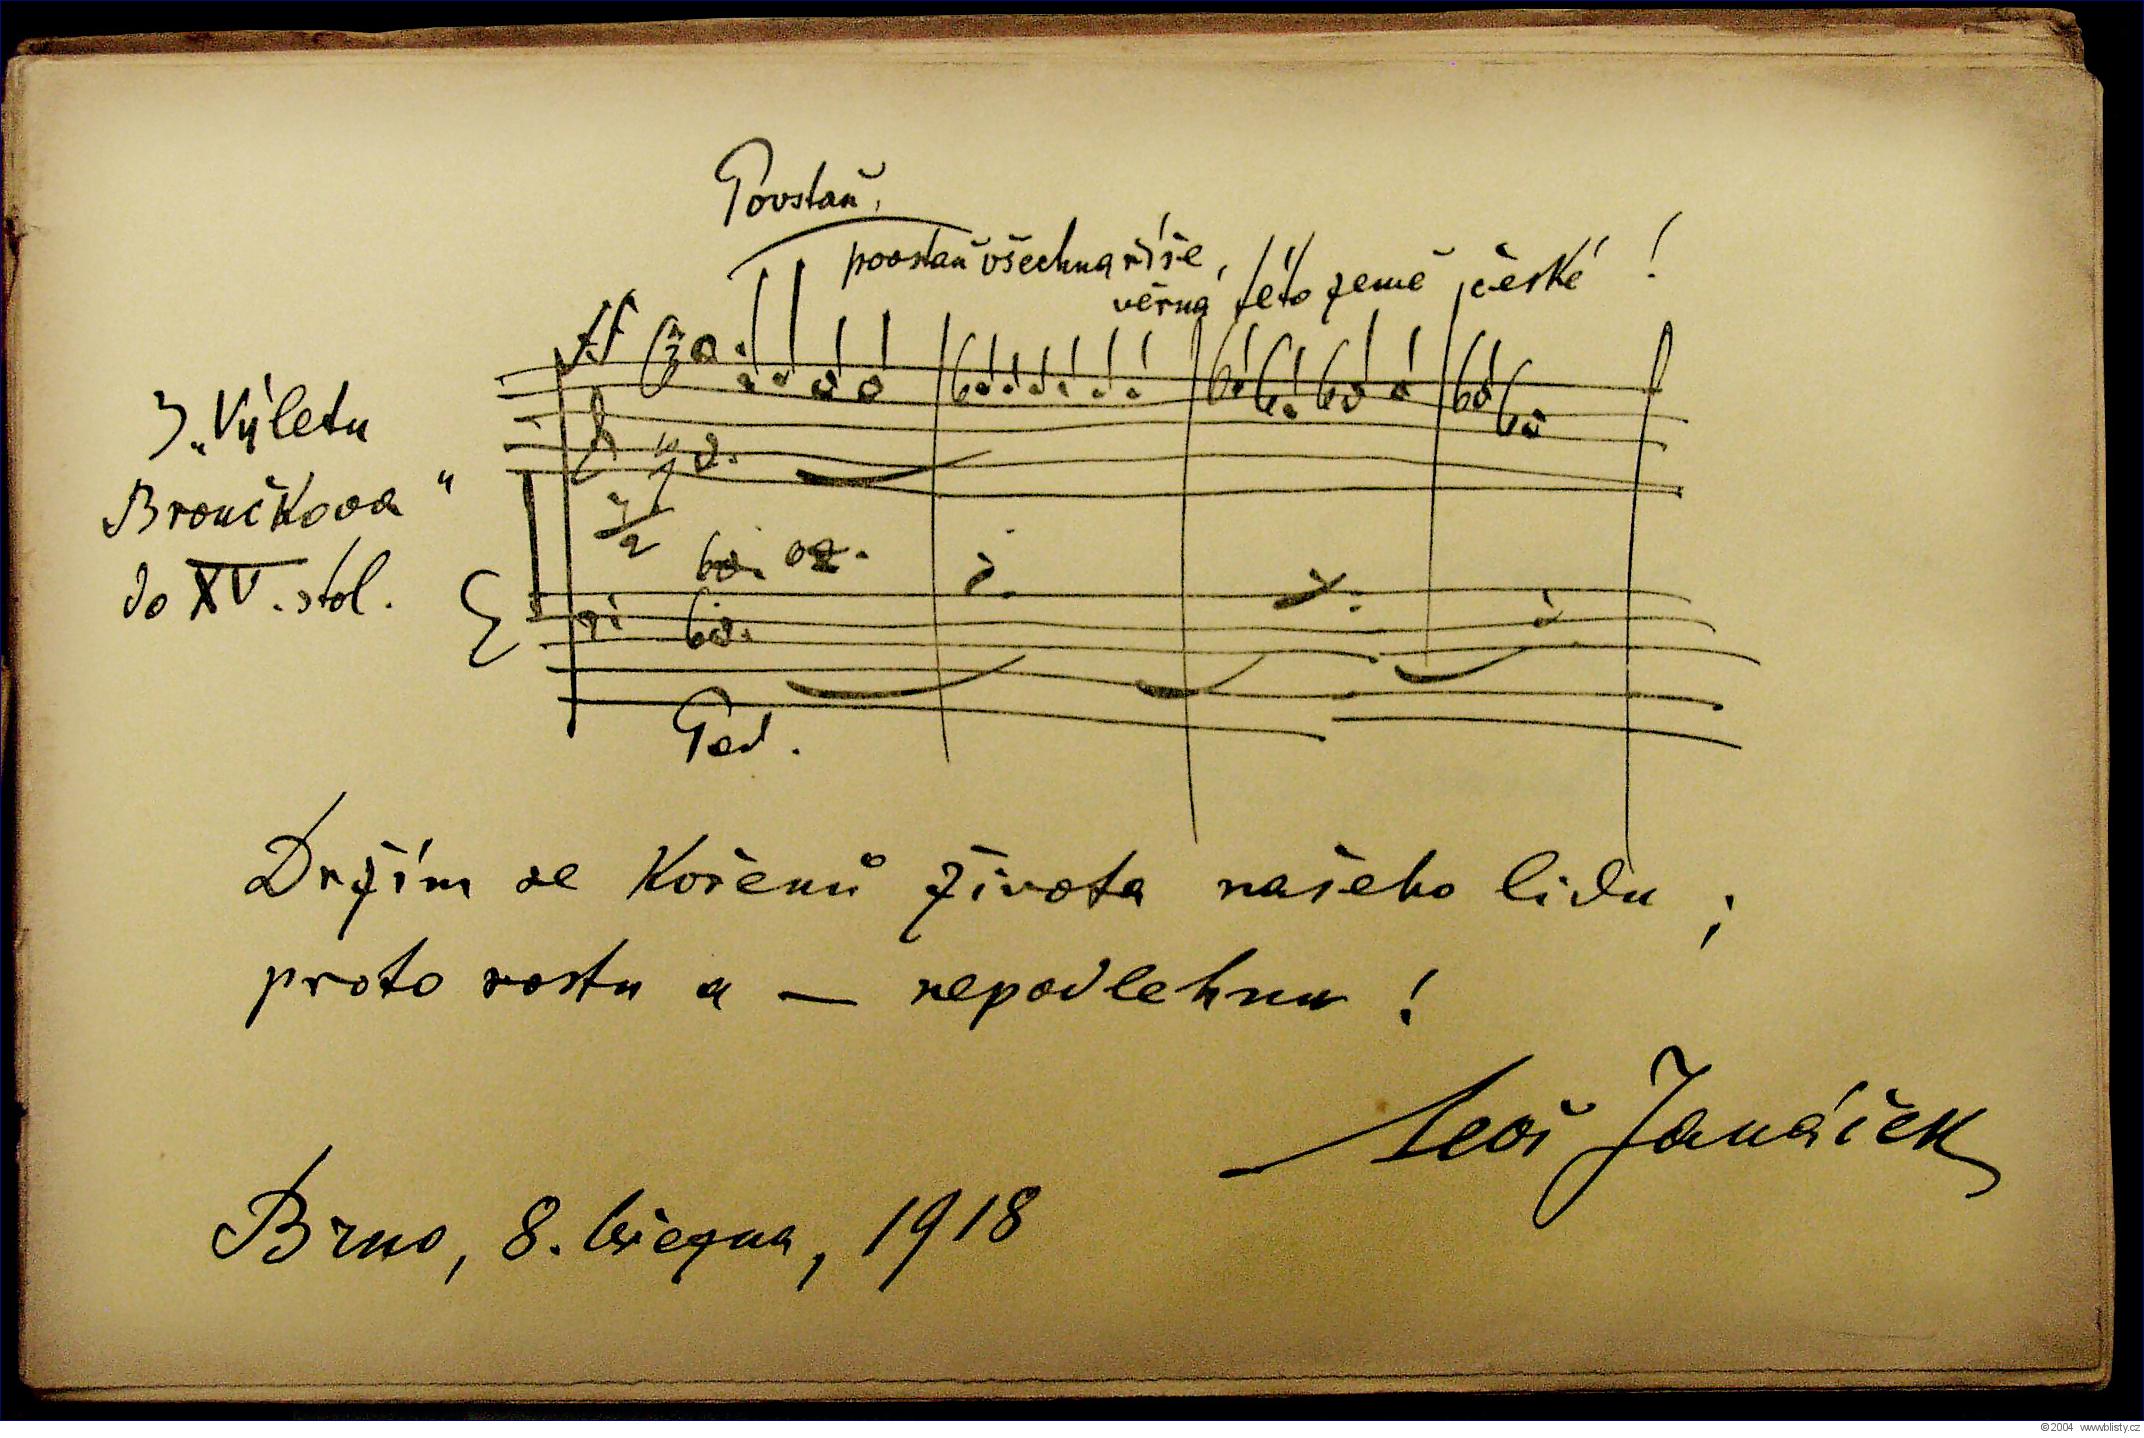 Povstaň,
povstaň všechna říše,
věrná této země české!
ff
Z „Výletu
Broučkova"
do XV. stol.
Ped.
Držím se kořenů života našeho lidu;
proto rostu a — nepodlehnu!
Leoš Janáček
Brno, 8. března, 1918
©2004 www.blisty.cz